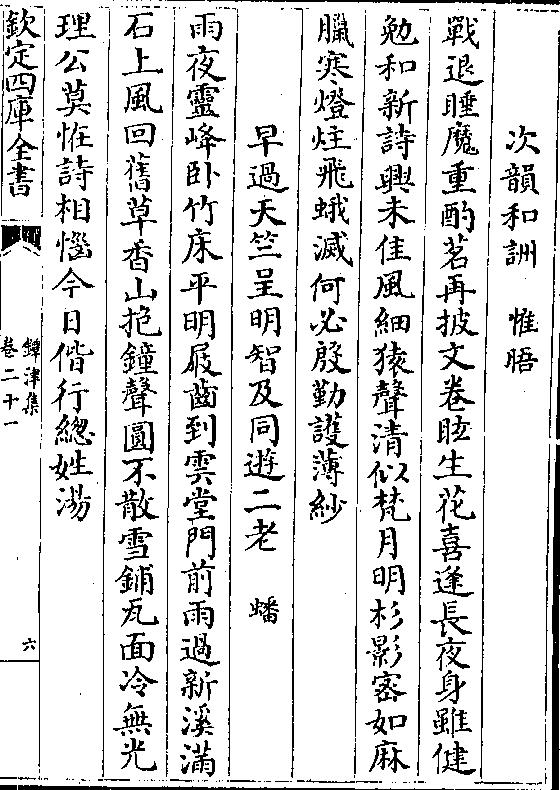 次韻和詶　惟晤
戰退睡魔重酌茗再披文卷眩生花喜逢長夜身雖健
勉和新詩興未佳風細猿聲清似梵月明杉影密如麻
臘寒燈炷飛蛾滅何必殷勤護薄紗
早過天竺呈明智及同遊二老　蟠
雨夜靈峰卧竹床平明屐齒到雲堂門前雨過新溪滿
石上風回舊草香山抱鐘聲圓不散雪鋪瓦面冷無光
理公莫恠詩相惱今日偕行總姓湯
欽定四庫全書
鐔津集
卷二十一
六